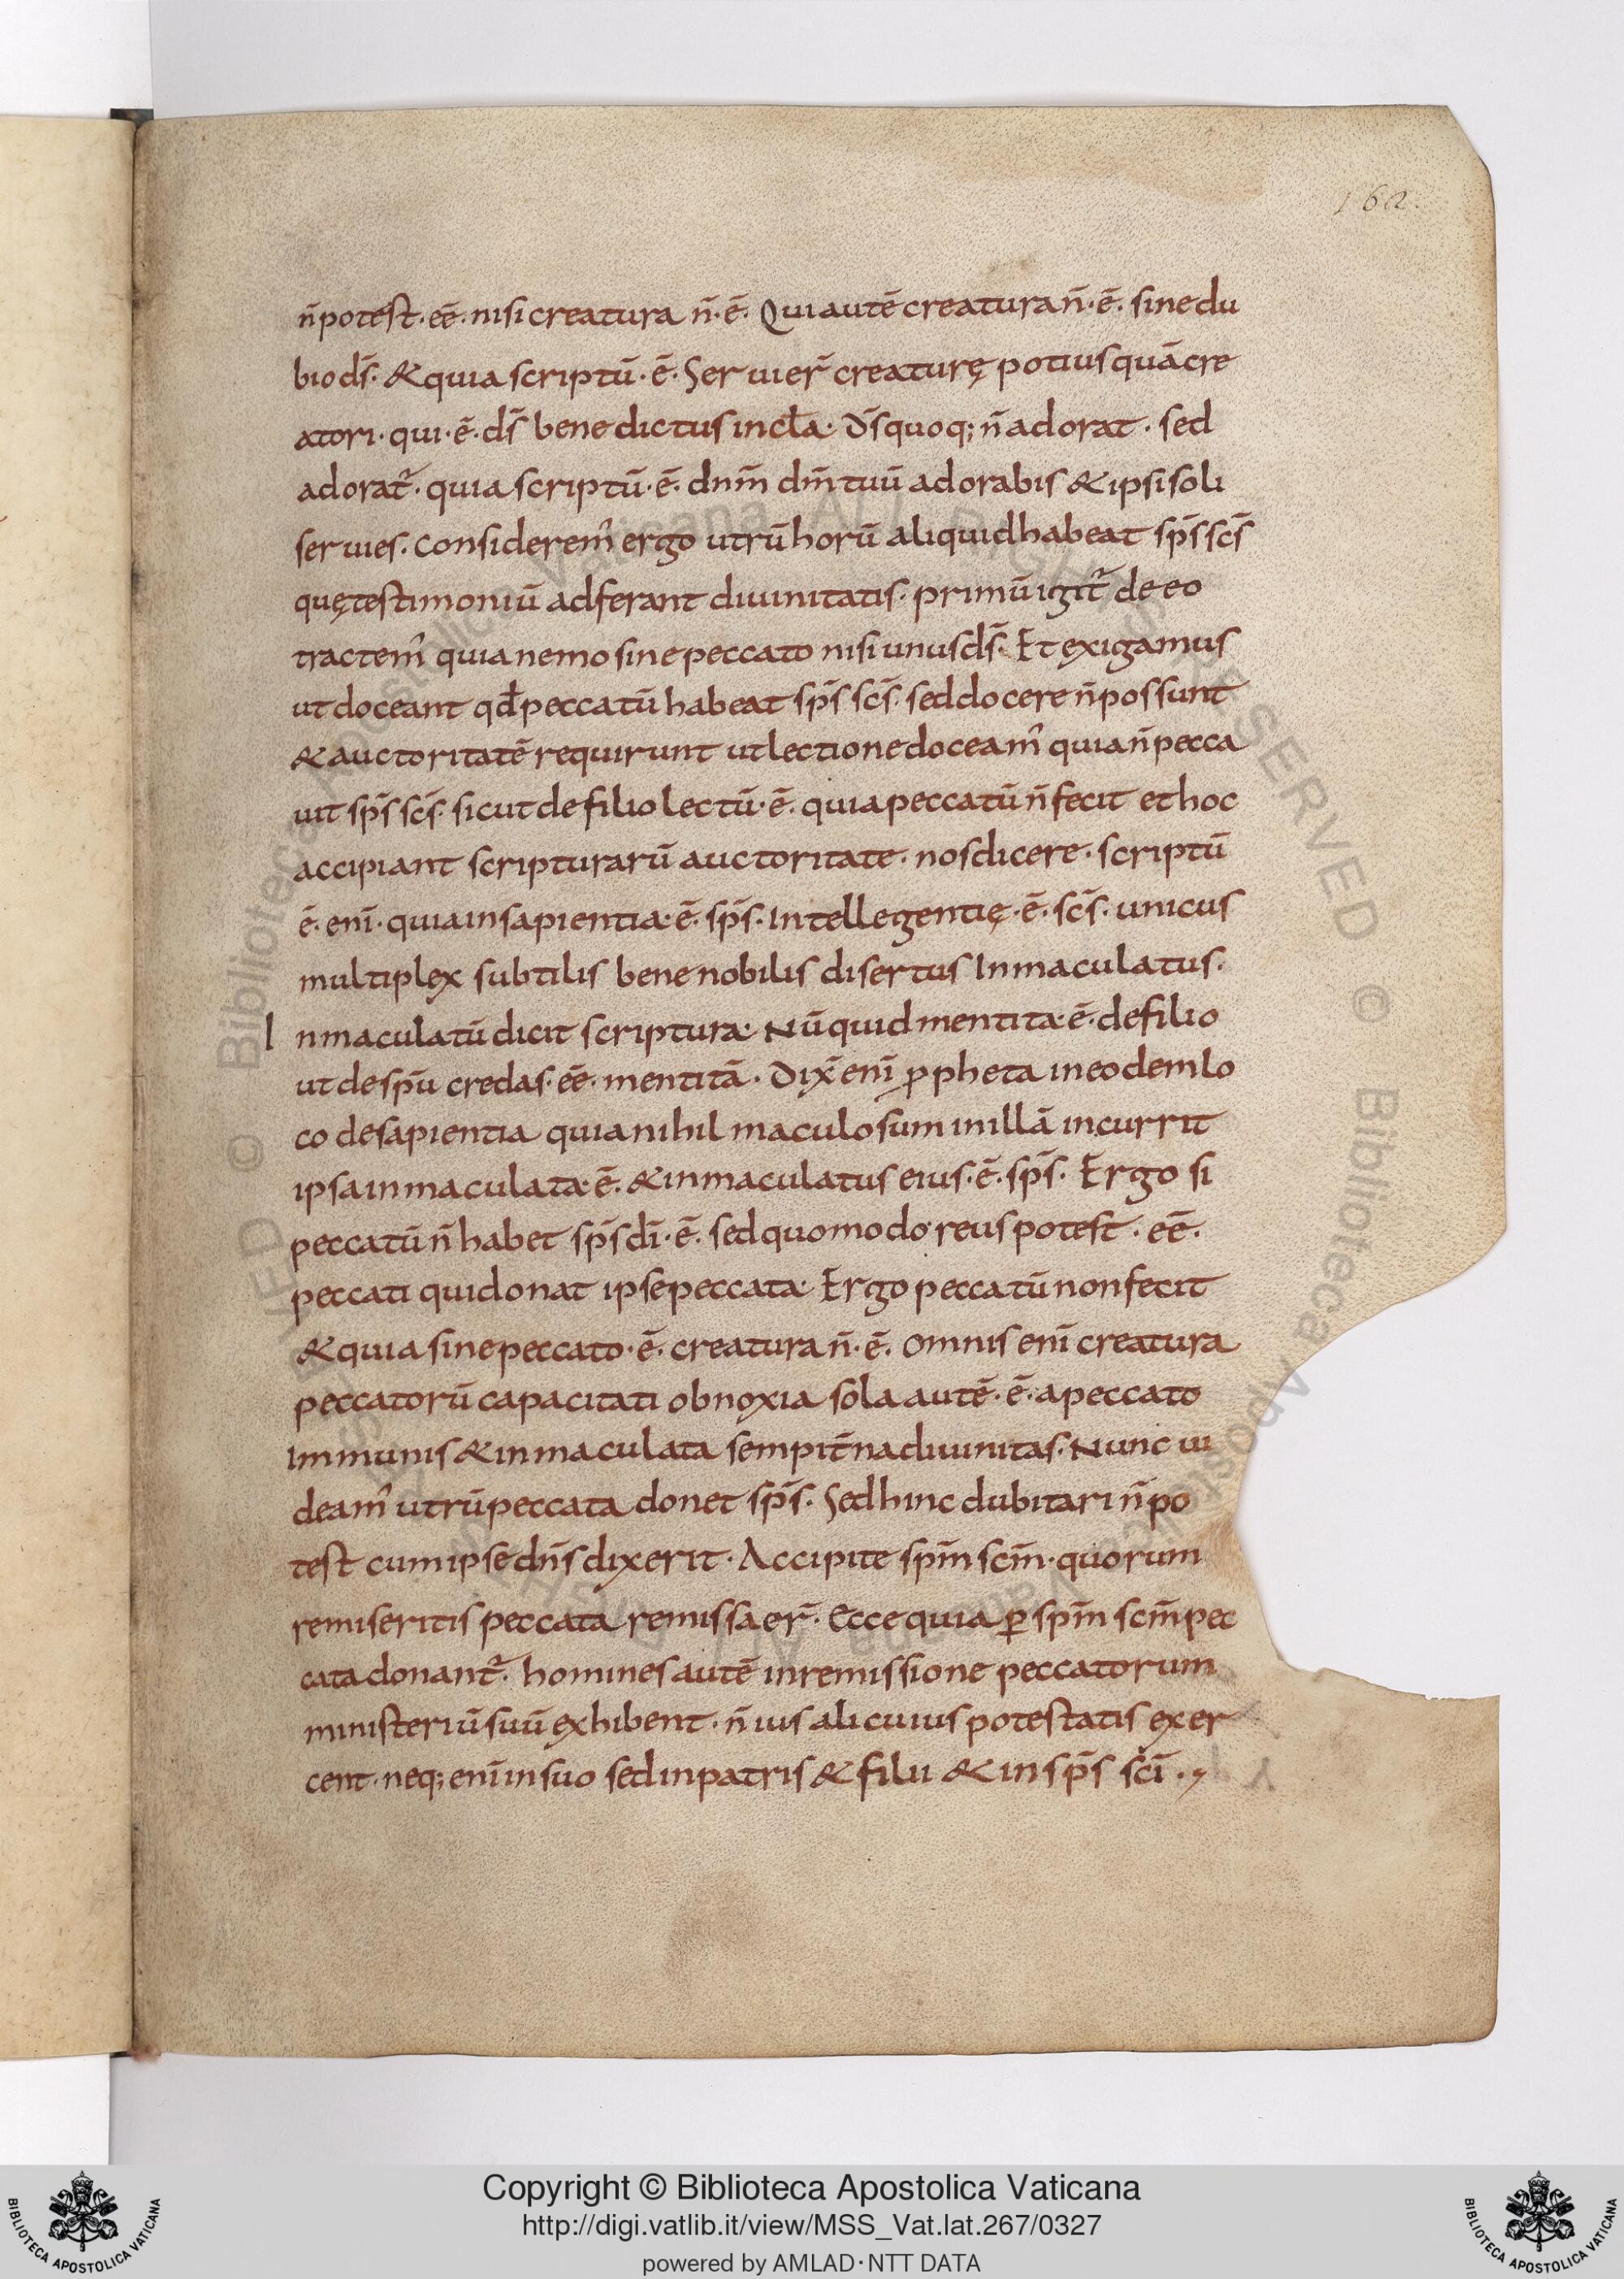 162
n̄ potest · eē · nisi creatura n̄ · ē · Qui autē creatura n̄ · ē · sine du
bio ds̄ · & quia scriptū · ē · Seruier̄ creaturę potius quā cre
atori · qui · ē · ds̄ benedictus in scl̄a · Ds̄ quoq; n̄ adorat · sed
adorat᷑ · quia scriptū · ē · dnm̄ dm̄ tuū adorabis & ipsi soli
seruies · Considerem᷒ ergo utrū horū aliquid habeat sp̄s sc̄s
quę testimoniū adferant diuinitatis · primū igit᷑ de eo
tractem᷒ quia nemo sine peccato nisi unus ds̄ · Et exigamus
ut doceant qd̄ peccatū habeat sp̄s sc̄s · sed docere n̄ possunt
& auctoritatē requirunt ut lectione doceam᷒ quia n̄ pecca
uit sp̄s sc̄s · sicut de filio lectū · ē · quia peccatū n̄ fecit et hoc
accipiant scripturarū auctoritate · nos dicere · scriptū
ē · enī · quia in sapientia · ē · sp̄s · Intellegentię · ē · sc̄s · unicus
multiplex subtilis bene nobilis disertus Inmaculatus ·
Inmaculatū dicit scriptura · Nūquid mentita · ē · de filio
ut de spū credas · eē · mentitā · Dix̄ enī ꝓpheta in eodem lo
co de sapientia quia nihil maculosum in illā incurrit
ipsa inmaculata · ē · & inmaculatus eius · ē · sp̄s · Ergo si
peccatū n̄ habet sp̄s dī · ē · sed quomodo reus potest · eē ·
peccati qui donat ipse peccata · Ergo peccatū non fecit
& quia sine peccato · ē · creatura n̄ · ē · Omnis enī creatura
peccatorū capacitati obnoxia sola autē · ē · a peccato
Immunis & inmaculata sempit̄na diuinitas · Nunc ui
deam᷒ utrū peccata donet sp̄s · Sed hinc dubitari n̄ po
test cum ipse dn̄s dixerit · Accipite spm̄ scm̄ · quorum
remiseritis peccata remissa er̄ · Ecce quia ꝑ spm̄ scm̄ pec
cata donant᷑ · homines autē in remissione peccatorum
ministeriū suū exhibent · n̄ ius alicuius potestatis exer
cent · neq; enī in suo sed in patris & filii & in sp̄s scī ·
Copyright © Biblioteca Apostolica Vaticana
http://digi.vatlib.it/view/MSS_Vat.lat.267/0327
powered by AMLAD · NTT DATA
BIBLIOTECA APOSTOLICA VATICANA
BIBLIOTECA APOSTOLICA VATICANA